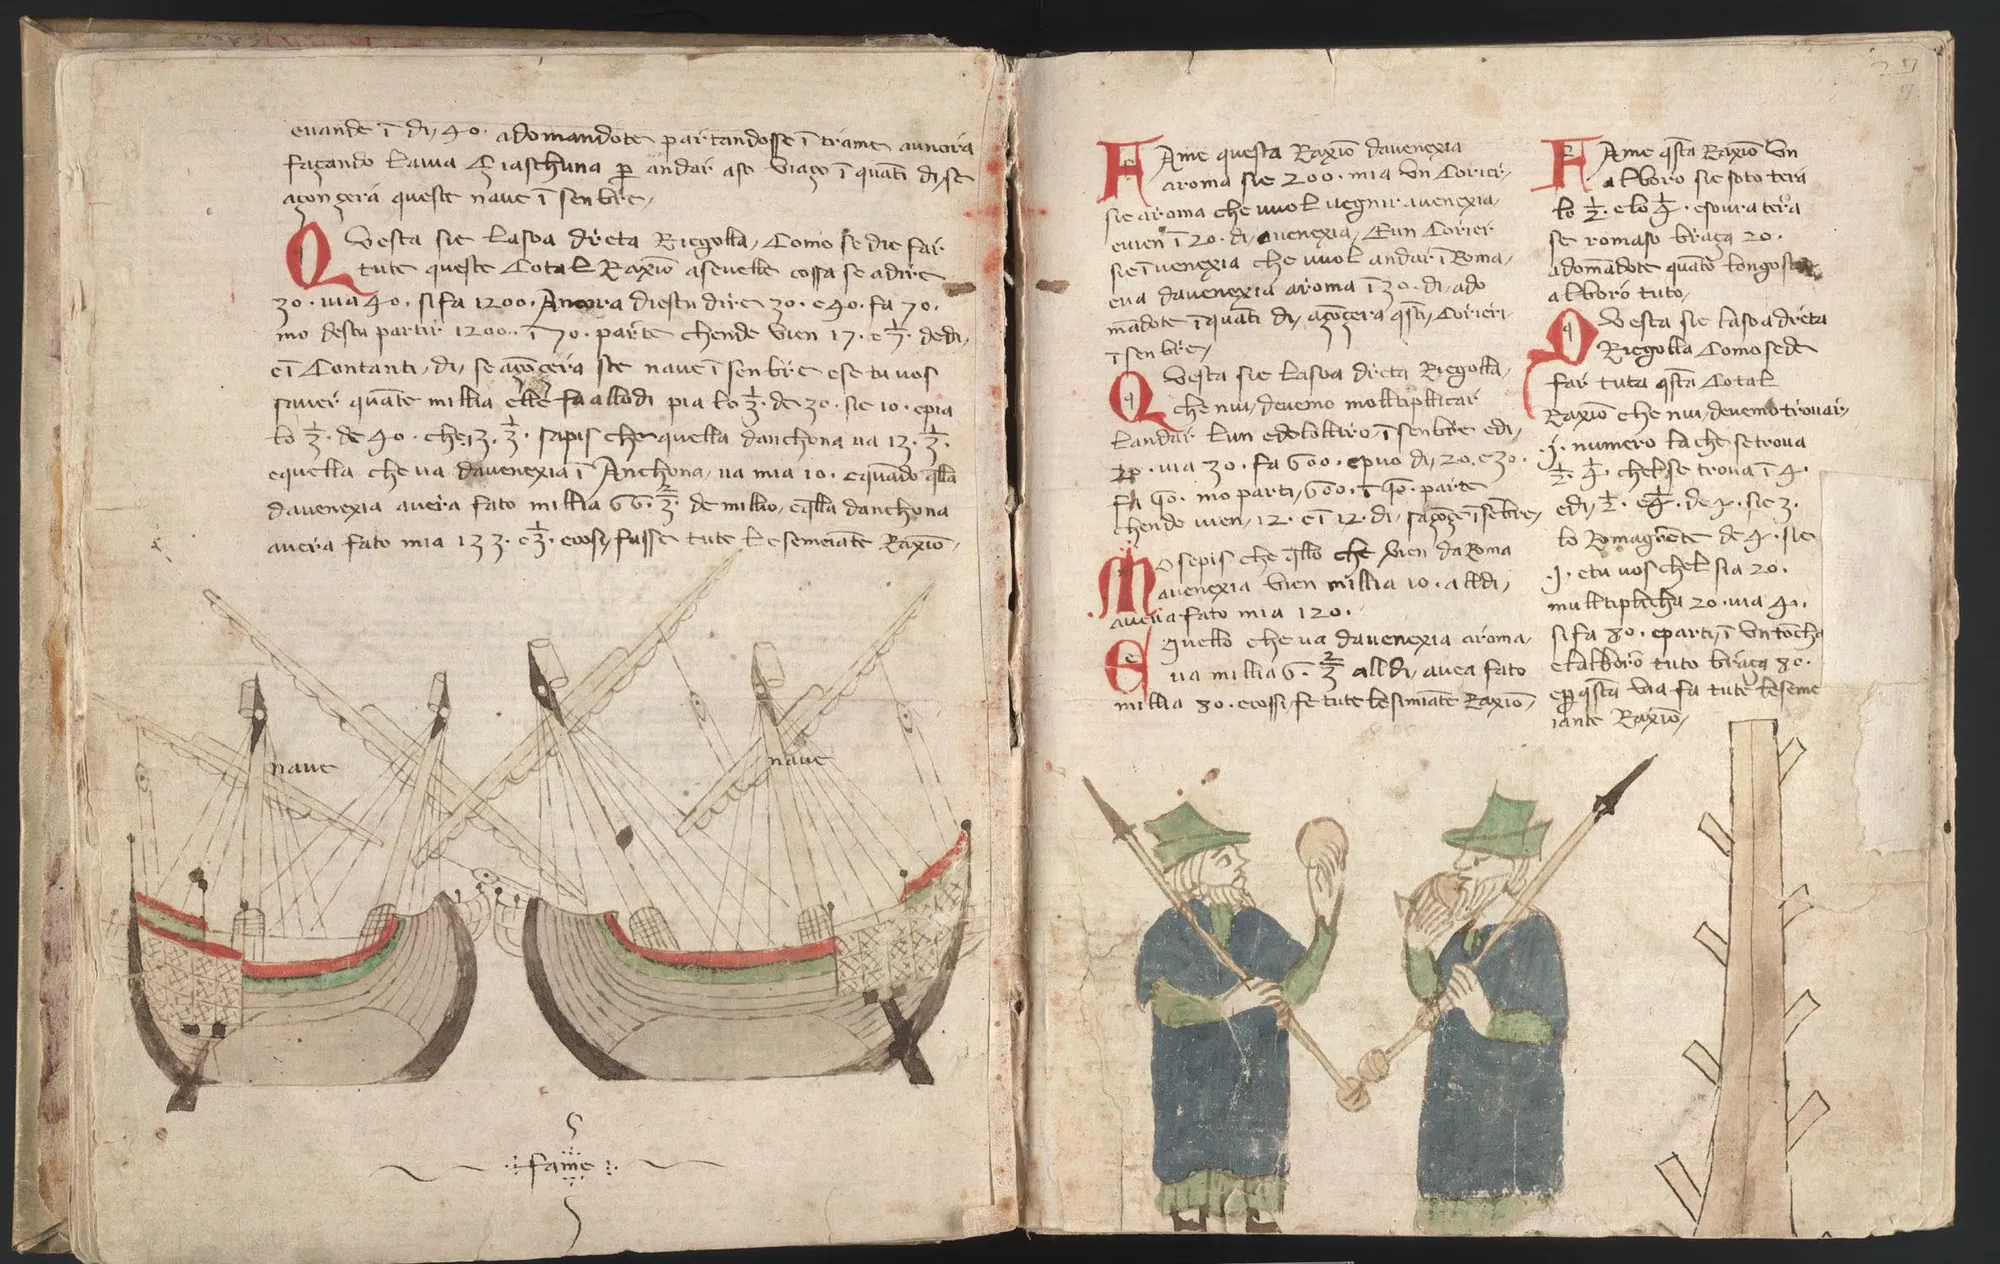 euande ī di, 40. adomandote partandosse ī trame aunora
façando laiua Ziaschuna p andar aso uiaço ī quāti di, se
açonzerà queste naue ī senbre,
Questa sie lasoa dreta Riegolla, Como se die far
tute queste Cotal Raxiō aseuelle cossa se adire
30. uia 40. si fa 1200. Ancora diestu dire 30. e 40. fa 70.
mo destu partir 1200. ī 70. parte chende vien 17. e 1/7. dedi,
e ī Contanti, di, se açōcera ste naue ī senbre e se tu uos
sauer quāte millia elle fa allo di pia lo 1/3. de 30. sie 10. epia
lo 1/3. de 40. che 13. 1/3. sapis che quella danchona ua 13. 1/3.
equella che ua dauenexia ī Anchona, ua mia 10. equādo qlla
dauenexia auera fato millia 66. 2/3. de millio, eqlla danchona
auera fato mia 133. e 1/3. ecosi, fasse tute le semeiāte Raxiō,
naue
naue
fame
FAme questa Raxiō dauenexia
aroma sie 200. mia Vn Corier,
sie aroma che uuol uegnir auenexia,
euien ī 20. di, auenexia, Eun Corier
sie ī uenexia che uuol andar ī Roma,
eua dauenexia aroma ī 30. di, ado
mādote ī quāti di, açōzera qsti, Corieri
ī senbre,
Questa sie lasoa dreta Riegolla,
che nui, deuemo moltiplicar
landar lun e delolltro, ī senbre e di,
20. uia 30. fa 600. epuo di, 20. e 30.
fa 50. mo parti, 600. ī 50. parte
chende uien, 12. e ī 12. di, saçōze ī sēbre,
Mo sepis che qllo che vien da Roma
auenexia vien millia 10. alldi,
auera fato mia 120.
E quello che ua dauenexia aroma,
ua millia 6. 2/3 alldi, auea fato
millia 80. ecossi, fe tute le simiāte Raxiō,
FAme qsta Raxiō Vn
alboro sie soto tera
lo 1/2. e lo 1/4. e soura tera
se romaso braça 20.
adomādote quāto longo sia
alboro tuto,
Questa sie lasoa dreta
Riegolla Como se de
far tuta qsta Cotal
Raxiō che nui, deuemo trouar,
.j. numero la che se troua
1/2. 1/4. chel se troua ī 4.
e di, 1/2. e 1/4. de 4. sie 3.
lo Romagnēte de 4. sie
.j. e tu uos chel sia 20.
multiplicha 20. uia 4.
si fa 80. eparti, ī Vn tocha
elalboro tuto braça 80.
e p qsta via fa tute le seme
iante Raxiō,